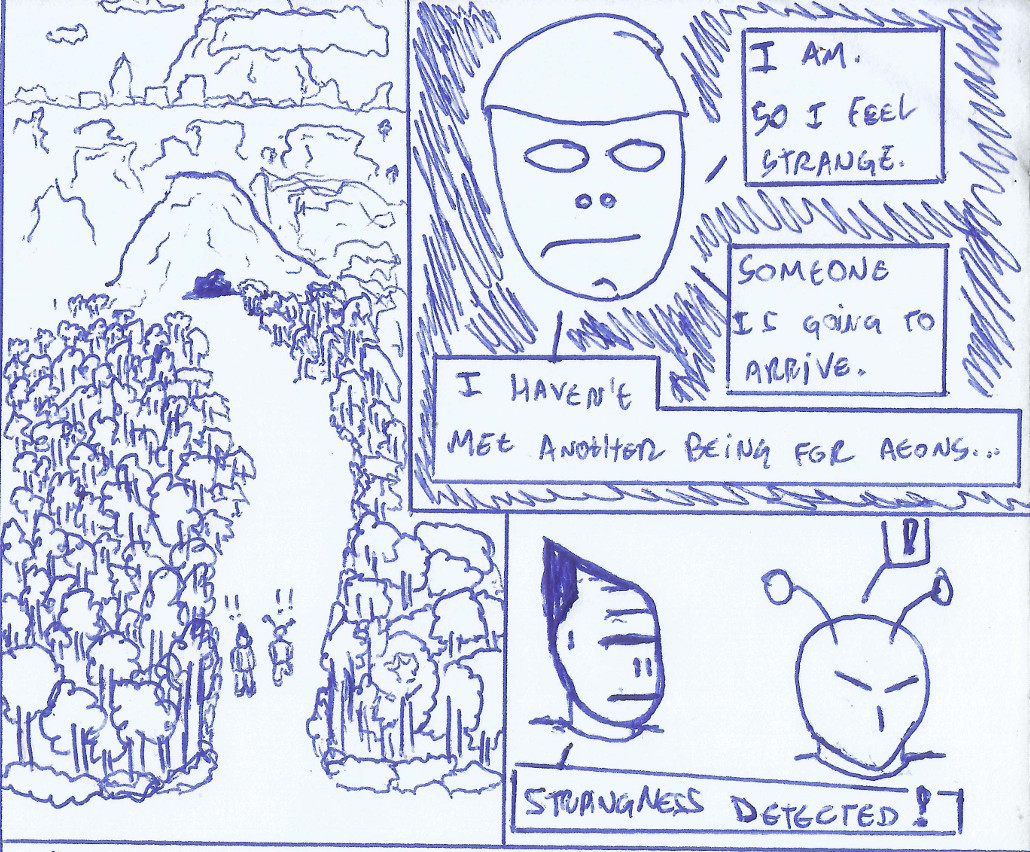 !! !!
I AM.
SO I FEEL
STRANGE.
SOMEONE
IS GOING TO
ARRIVE.
I HAVEN'T
MET ANOTHER BEING FOR AEONS...
!
STRANGNESS DETECTED!